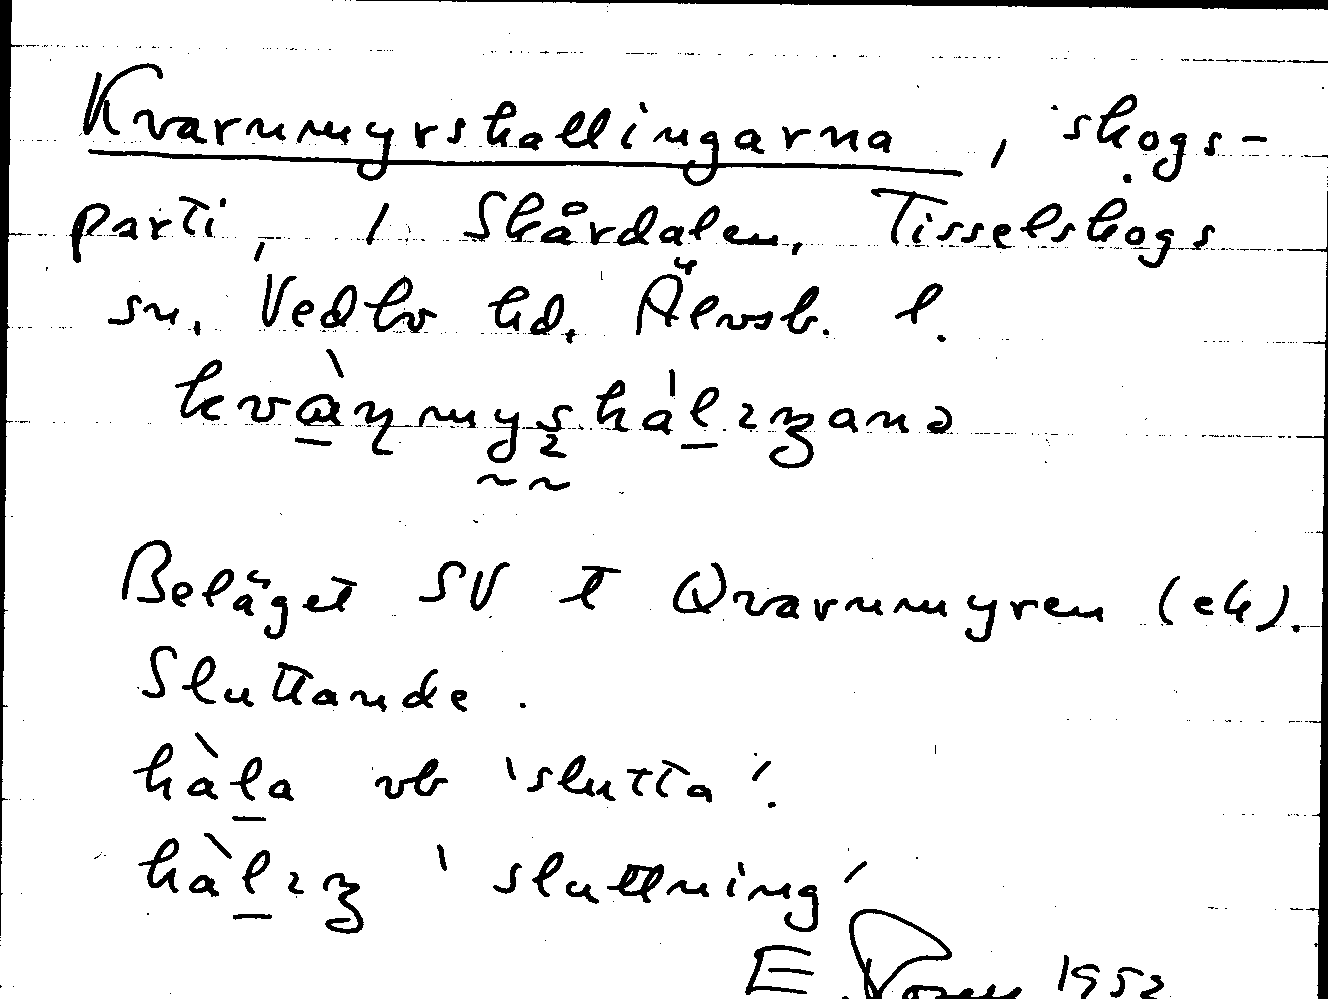 Kvarnmyrshallingarna, skogs-
parti, 1 Skårdalen, Tisselskogs
sn, Vedbo hd, Älvsb. l.
Beläget SV t Qvarnmyren (ek).
Sluttande.
hàla vb 'slutta'.
'sluttning'
E. 1952